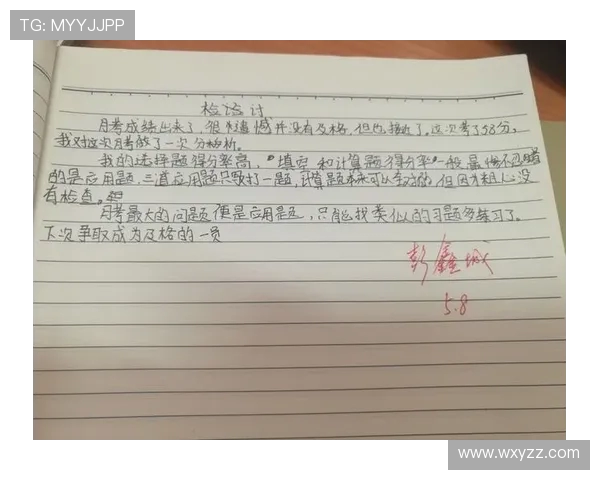 TG: MYYJJPP
检讨
月考成绩出来了,很遗憾并没有及格,但也接近了,这次考了58分,
我对这次月考做了一次分析。
我的选择题得分率高,填空和计算题得分率一般,最
的是应用题,三道应用题只做对一题,计算题本来可以全对的,但因为粗心没
有检查。
月考最大的问题便是应用题,只能找类似的习题多练习了。
下次争取成为及格的一员
彭鑫城
5.8
www.wxyzz.com